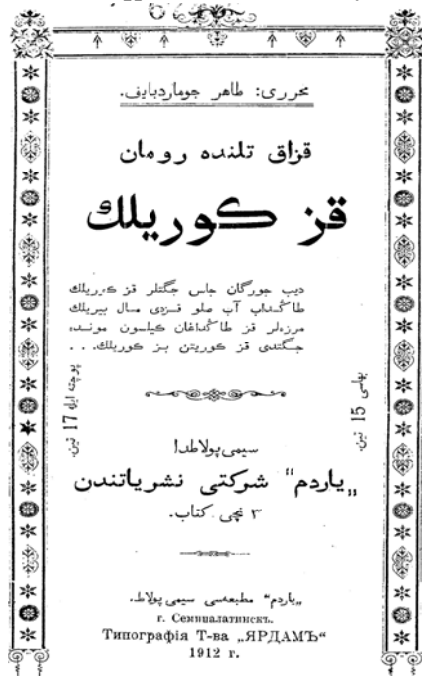 محرری: طاهر جوماردبایف.
قزاق تلنده رومان
قز كوریلك
دیب جورگان جاس جگتلر قز كوریلك
طاڭداپ آپ صلو قزدی مال بیریلك
مرزهلر قز طاڭداغان كیلسون موندە
جگتدی قز كوریتن بز كوریلك. . .
پوچته ایله 17 تین.
بهاسی 15 تین.
سیمی پولاطدا
„یاردم“ شركتی نشریاتندن
٣ نچی كتاب.
„یاردم“ مطبعهسی سیمی پولاط.
г. Семипалатинскъ.
Типографія Т-ва „ЯРДАМЪ“
1912 г.